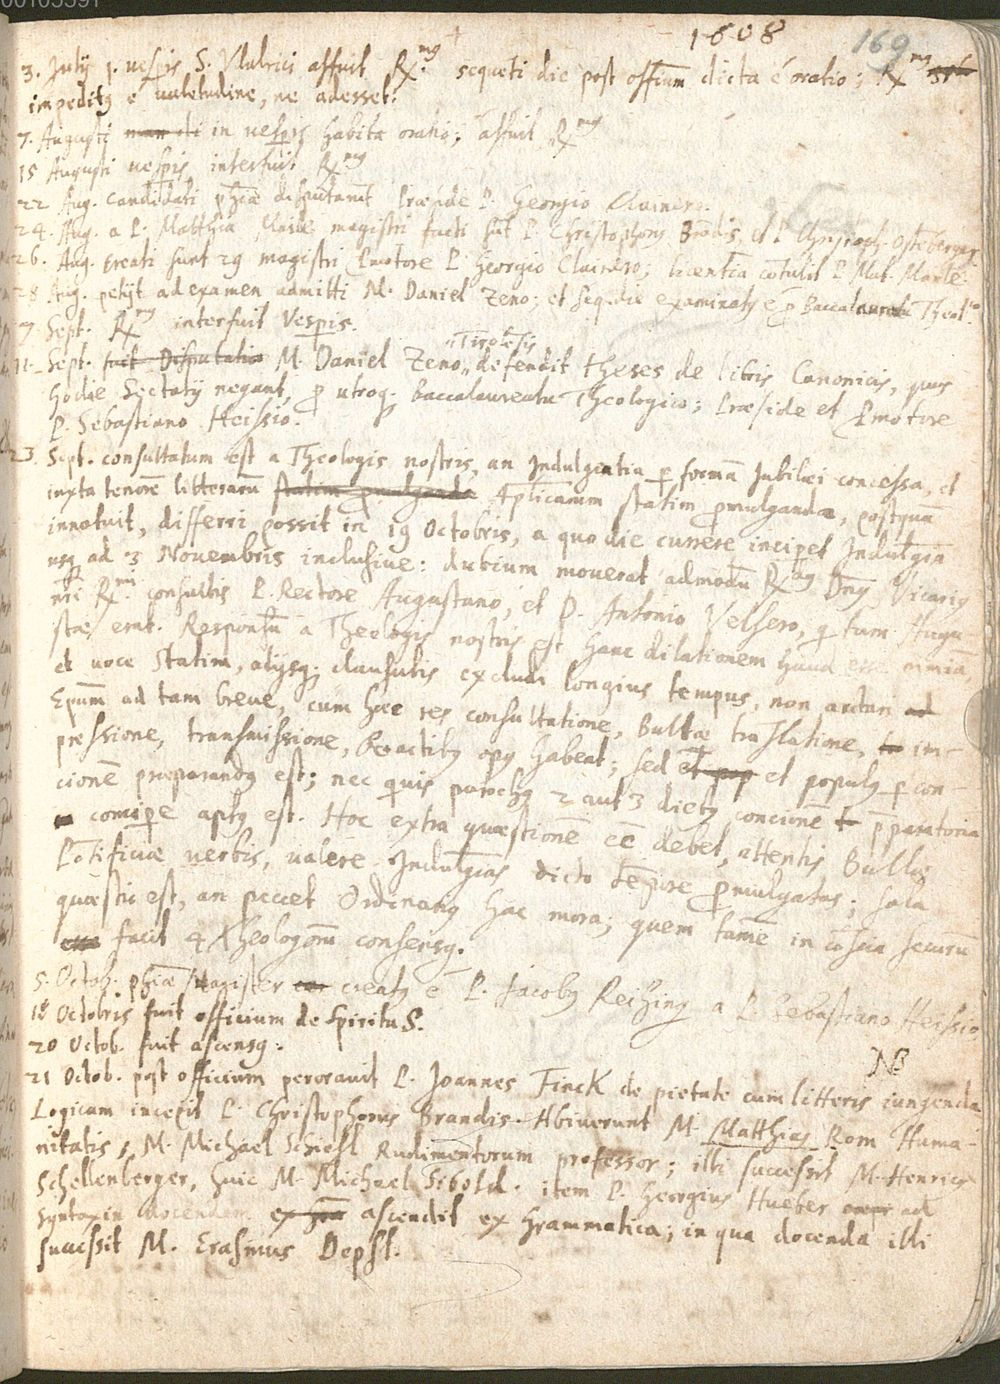 00105591
1608
169
3. Julij 1. vesp̄is S. Vdalrici affuit R.mꝰ sequēti die post offiūm dicta ē oratio; Rmꝰ
impeditꝰ ē valetudine, ne adesset.
7. Augusti in vesp̄is habita oratio; affuit Rmꝰ
15 Augusti vesp̄is interfuit Rmꝰ
22 Aug. Candidati phiæ disputarūt Præside P. Georgio Clainero.
24. Aug. a P. Matthia magistri facti sūt P. Christophorꝰ Brādis, et P. Christoph. Ostebergerꝰ
26. Aug. creati sunt 29 magistri P̄motore P. Georgio Clainero; licentiā cōtulit P. Mat.
28 Aug. petijt ad examen admitti M. Daniel Zeno; et seq. die examinatꝰ ē p̄ Baccalaureatu Theol.co
7 Sept. Rmꝰ interfuit Vesp̄is.
Tirolēsis
11. Sept. fuit Disputatio M. Daniel Zeno defendit theses de libris Canonicis, quos
hodie Sectarij negant, p̄ utroq; Baccalaureatu Theologico; Præside et P̄motore
P. Sebastiano Heissio.
23. Sept. consultatum est a Theologis nostris, an Indulgentia p̄ formā Jubilæi concessa, et
iuxta tenorē litterarū statim p̄mulganda Aplicarum statim p̄mulgandæ, postquā
innotuit, differri possit in 19 Octobris, a quo die currere incipet Indulgīa
usq ad 3 Novembris inclusive: dubium moverat admodū R.dꝰ Dnꝰ Vicariꝰ
nri Rmi consultis P. Rectore Augustano, et P. Antonio Velsero, q tum Augu-
stæ erat. Responsū a Theologis nostris est hanc dilationem haud esse nimiā,
et voce Statim, alijsq; clausulis excludi longius tempus, non arctari ad
Epūm ad tam breve, cum hæc res consultatione, Bullæ trāslatione, im-
pressione, transmissione, & actibꝰ opꝰ habeat; sed et pop et populꝰ p̄ con-
cionē præparandꝰ est; nec quivis parochꝰ 2 aut 3 diebꝰ concionē p̄paratoria
concipe aptꝰ est. Hoc extra quæstionē eē debet, attentis Bullæ
Pōtificiæ verbis, valere Indulgīas dicto tēpore p̄mulgatas; sola
quæstio est, an peccet Ordinariꝰ hac mora; quem tamē in cōscia securū
facit 4 Theologorū consensꝰ.
5. Octob. phiæ Magister creatꝰ ē P. Jacobꝰ Reihing a P. Sebastiano Heissio
18 Octobris fuit officium de Spiritu S.
20 Octob. fuit ascensꝰ.
NB
21 Octob. post officium peroravit P. Joannes Finck de pietate cum litteris iungenda
Logicam incepit P. Christophorus Brandis. Abiverunt M. Matthias Rom Huma-
nitatis, M. Michael Schiesl Rudimentorum professor; illi successit M. Henricꝰ
Schellenberger, huic M. Michael Sibold. item P. Georgius Hueber ad
Syntaxin docendam ascendit ex Grammatica; in qua docenda illi
successit M. Erasmus Depst.